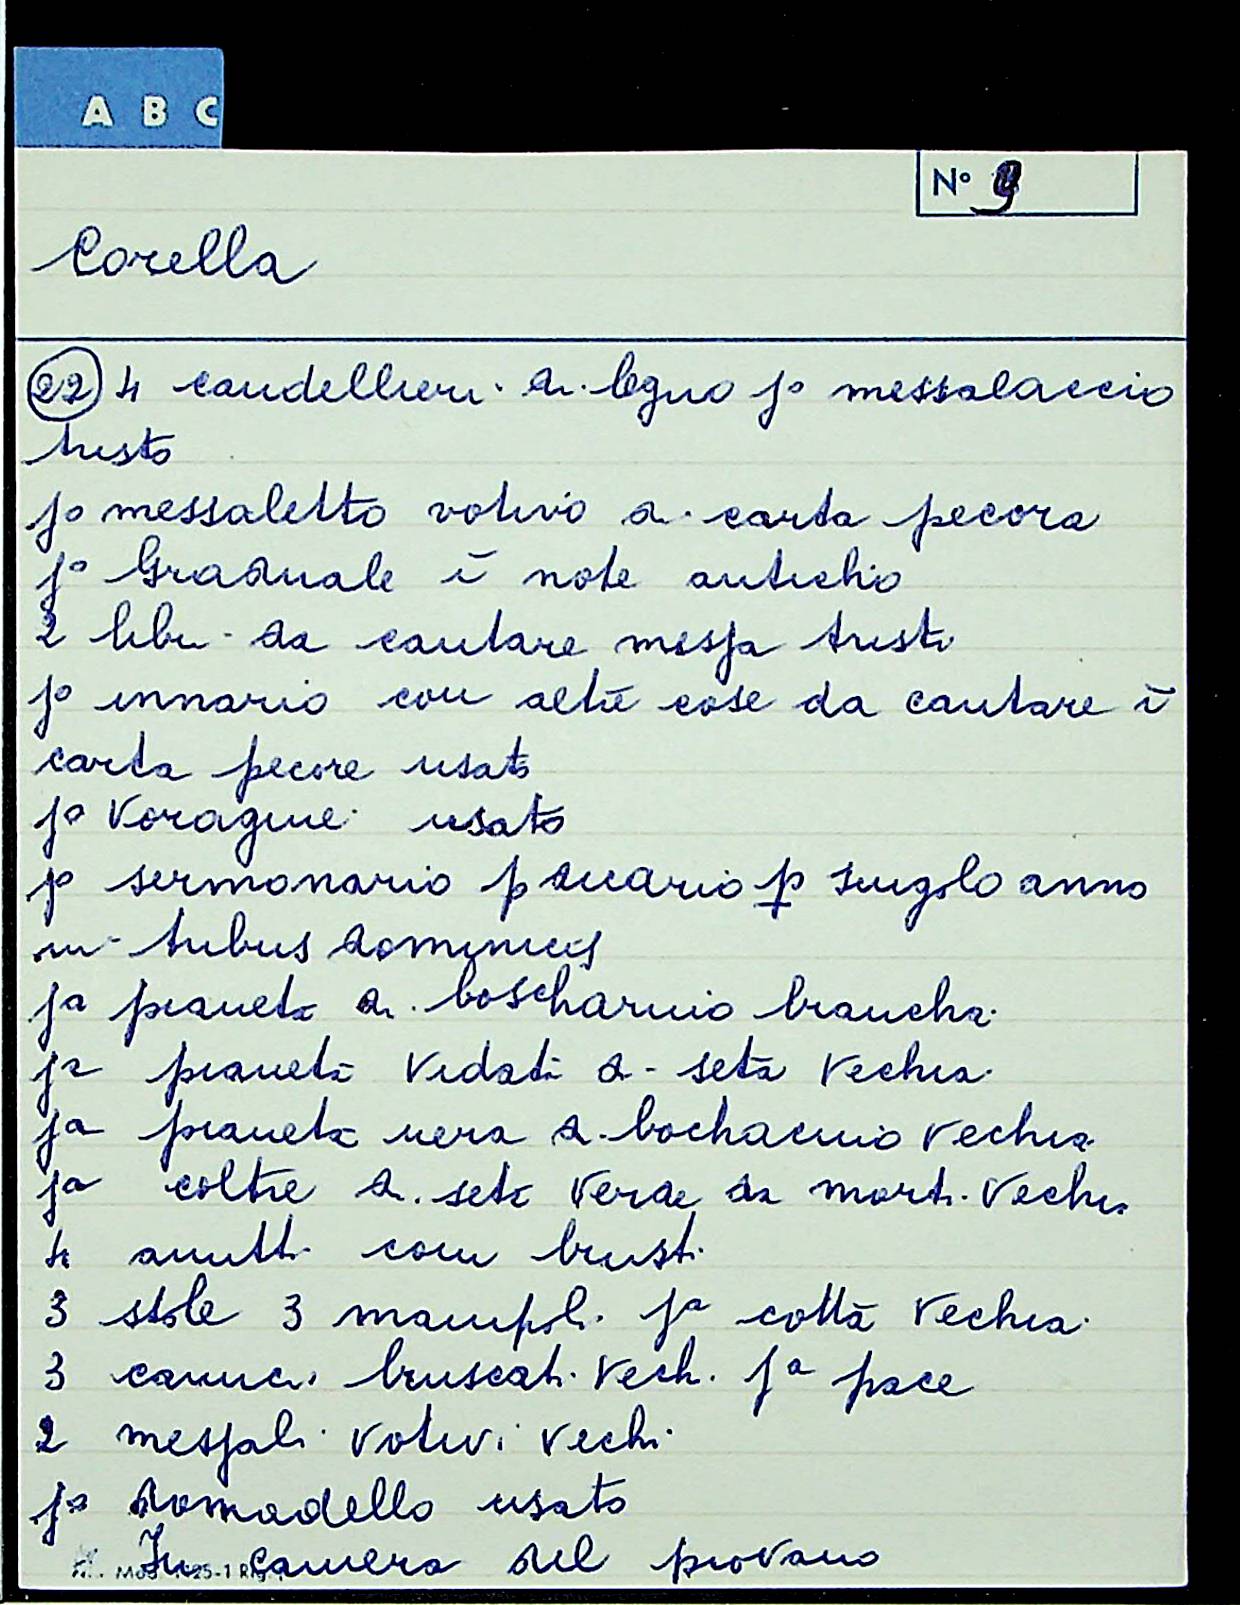 A B C
N° 9
Corella
22 4 candellieri di legno jº messalaccio
tristo
jº messaletto votivo di carta pecora
jº Graduale ī note antichio
2 libri da cantare messa tristi
jº innario con altre cose da cantare ī
carta pecore usato
jº Voragine usato
jº sermonario p singolo anno
in tribus dominicis
jª pianeta di boscharino biancha
jª pianeta di seta vechia
jª pianeta nera di vechia
jª coltre di seta verde da morti vechia
4 amitti com busti
3 stole 3 manipoli jª cotta vechia
3 camici vechi jª pace
2 messali votivi vechi
jº domadello usato
In camera del piovano